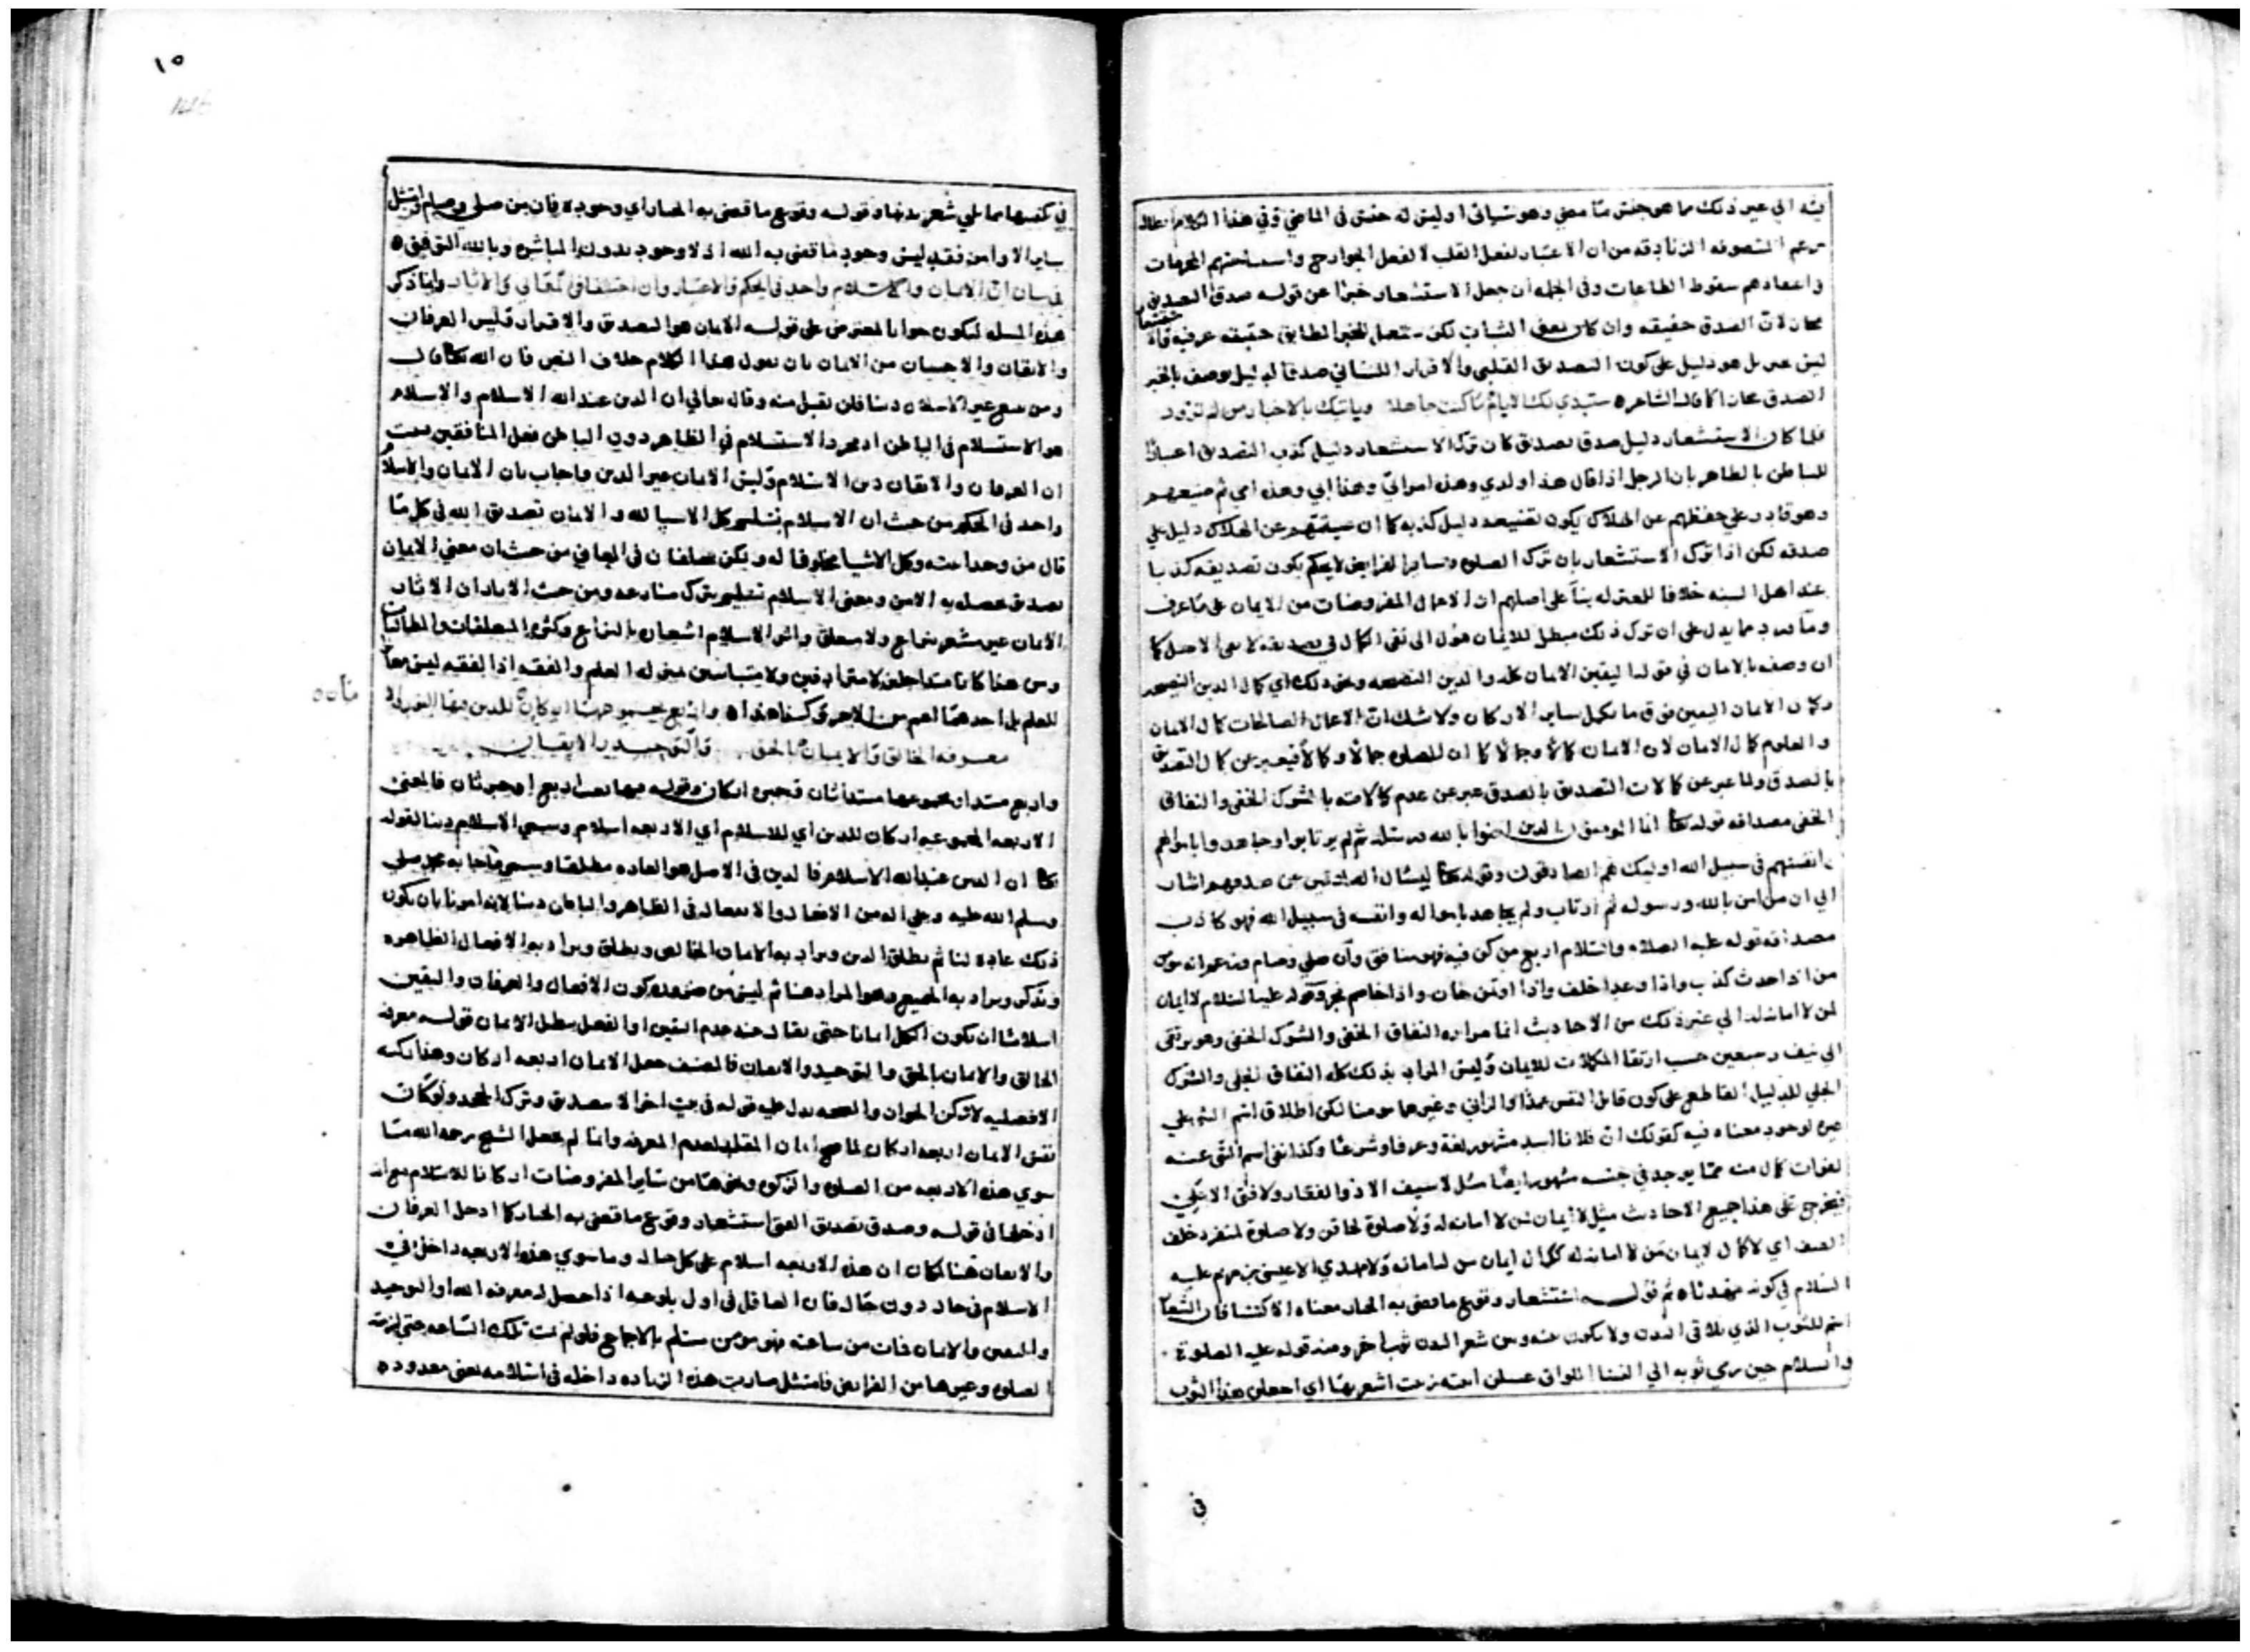 فيه الي غير ذلك مما هو جنس ما مضي وهو سياتي اوليس له جنس في الماضي وفي هذا الكلام
زعم المتصوفه الزنادقه من ان الاعتبار لفعل القلب لا لفعل الجوارح واستباحتهم المحرمات
في اعتقادهم سقوط الطاعات وفي الجمله ان جعل الاستشعار خبرا عن قوله صدق التصديق
مجاز لان الصدق حقيقه وان كان بمعني الثبات لكن يستعمل للخبر المطابق حقيقه عرفيه
ليس بخبر بل هو دليل علي كون التصديق القلبي والاقرار اللساني صدقا لدليل يوصف بالخبر
الصدق مجازا كما قال الشاعر ستبدي لك الايام ما كنت جاهلا وياتيك بالاخبار من لم تزود
فلما كان الاستشعار دليل صدق تصديق كان ترك الاستشعار دليل كذب التصديق اعتبارا
للباطن بالظاهر بان الرجل اذا قال هذا ولدي وهذه امراتي وهذا ابي وهذه امي ثم ضيعهم
وهو قادر علي حفظهم عن الهلاك يكون تضييعه دليل كذبه كما ان صيانتهم عن الهلاك دليل علي
صدقه لكن اذا ترك الاستشعار بان ترك الصلوه وساير الفرايض لا يحكم بكون تصديقه كذبا
عند اهل السنه خلافا للمعتزله بناء علي اصلهم ان الاعمال المفروضات من الايمان علي ما عرف
وما ورد مما يدل علي ان ترك ذلك مبطل للايمان مؤول الي نفي الكمال في تصديقه لا نفي الاصل كما
ان وصفه بالايمان في قوله اليقين الايمان كله والدين النصيحه ونحو ذلك اي كمال الدين النصيحه
وكمال الايمان اليقين فوق ما يكمل بساير الاركان ولا شك ان الاعمال الصالحات كمال الايمان
والعلوم كمال الايمان لان الايمان كمالا وجمالا كما ان للصلوه جمالا وكمالا فيعبر عن كمال التصديق
بالصدق ولما عبر عن كمالات التصديق بالصدق عبر عن عدم كمالاته بالشرك الخفي والنفاق
الخفي مصداقه قوله تعا انما المومنون الذين امنوا بالله ورسوله ثم لم يرتابوا وجاهدوا باموالهم
وانفسهم في سبيل الله اوليك هم الصادقون وقوله تعا ليسال الصادقين عن صدقهم اشار
الي ان من امن بالله ورسوله ثم ارتاب ولم يجاهد بامواله وانفسه في سبيل الله فهو كاذب
مصداقه قوله عليه الصلاه والسلام اربع من كن فيه فهو منافق وان صلي وصام وزعم انه مومن
من اذا حدث كذب واذا وعد اخلف واذا اوتمن خان واذا خاصم فجر وقوله عليه السلام لا ايمان
لمن لا امانه له الي غير ذلك من الاحاديث انما مراده النفاق الخفي والشرك الخفي وهو يرتقي
الي نيف وسبعين حسب ارتقا المكملات للايمان وليس المراد بذلك كله النفاق الجلي والشرك
الجلي للدليل القاطع علي كون قاتل النفس عمدا والزاني وغيرهما مومنا لكن اطلاق اسم الشي علي
غيره لوجود معناه فيه كقولك ان فلانا اسد مشهور لغة وعرفا وشرعا وكذا نفي اسم الشي عنه
لفوات كمال منه مما يوجد في جنسه مشهور ايضا مثل لا سيف الا ذو الفقار ولا فتي الا علي
فيخرج علي هذا جميع الاحاديث مثل لا ايمان لمن لا امانه له ولا صلوة لحاقن ولا صلوة لمنفرد خلف
الصف اي لا كمال لايمان من لا امانه له ككمال ايمان من له امانه ولا مهدي الا عيسي بن مريم عليه
السلام في كونه مهديا ثم قوله استشعار وقوع ما قضي به الجبار معناه الاكتسا فان الشعار
اسم للثوب الذي يلاقي البدن ولا يكون بينه وبين شعر البدن ثوب اخر ومنه قوله عليه الصلوة
والسلام حين رمي ثوبه الي النسا اللواتي غسلن ابنته زينب اشعرنها اي اجعلن هذا الثوب
في
١٥
في كفنها مما يلي شعر بدنها وقوله وقوع ما قضي به الجبار اي وجوده فان من صلي وصام وامتثل
ساير الاوامر فقد لبس وجود ما قضي به الله اذ لا وجود بدون المباشره وبالله التوفيق
في بيان ان الايمان والاسلام واحد في الحكم والاعتبار وان اختلفا في المعاني والاثار وانما ذكر
هذه المسله ليكون جوابا لمعترض علي قوله الايمان هو التصديق والاقرار وليس العرفان
والايقان والاحسان من الايمان بان يقول هذا الكلام خلاف النص فان الله تعا قال
ومن يبتغ غير الاسلام دينا فلن يقبل منه وقال تعالي ان الدين عند الله الاسلام والاسلام
هو الاستسلام في الباطن اذ مجرد الاستسلام في الظاهر دون الباطن فعل المنافقين
ان العرفان والايقان دين الاسلام وليس الايمان غير الدين فاجاب بان الايمان والاسلام
واحد في الحكم من حيث ان الاسلام تسليم كل الاشيا لله والايمان تصديق الله في كل ما
قال من وحدانيته وكل الاشيا مخلوقا له ولكن يختلفان في المعاني من حيث ان معني الايمان
تصديق يحصل به الامن ومعني الاسلام تسليم بترك منازعه ومن حيث الاثار ان الاثار
الايمان غير مشعر بنزاع ولا متعلق واثر الاسلام اشعار بالنزاع وكثرة المتعلقات والمطالبات
ومن هذا كانا متداخلين لا مترادفين ولا متباينين بمنزله العلم والفقه اذ الفقه ليس مغايرا
للعلم بل احدهما اعم من الاخر وكذا هذا واربع مجموعها اركان للدين
معرفه الخالق والايمان بالحق والتوحيد والايقان
واربع مبتدا ومجموعها مبتدا ثان وخبره اركان وقوله فيها نعت اربع او خبر ثان فالمعني
الاربعه المجموعه اركان للدين اي للاسلام اي الاربعه اسلام وسمي الاسلام دينا لقوله
تعا ان الدين عند الله الاسلام فالدين في الاصل هو العاده مطلقا وسمي ما جا به محمد صلي
وسلم الله عليه وعلي اله من الافعال والانفعال في الظاهر والباطن دينا لانا امرنا بان يكون
ذلك عادة لنا ثم يطلق الدين ويراد به الايمان الخالص ويطلق ويراد به الافعال الظاهره
ويذكر ويراد به الجميع وهو المراد هنا ثم ليس من ضروره كون الافعال والعرفان واليقين
اسلاما ان يكون الكل ايمانا حتي يقال عند عدم اليقين او الفعل يبطل الايمان قوله معرفه
الخالق والايمان بالحق والتوحيد والايقان فالمصنف جعل الايمان اربعه اركان وهذا ركنيه
الافضليه لا ركن الجواز والصحه يدل عليه قوله في بيت اخر الا بتصديق وترك الجحد ولو كان
نفس الايمان اربعه اركان لما صح ايمان المقلد لعدم المعرفه وانما لم يجعل الشيخ رحمه الله ما
سوي هذه الاربعه من الصلوه والزكوه ونحوهما من ساير المفروضات اركانا للاسلام مع انه
ادخلها في قوله وصدق تصديق الفتي استشعار وقوع ما قضي به الجبار كما ادخل العرفان
والايقان هنا لمكان ان هذه الاربعه اسلام علي كل حال وما سوي هذه الاربعه داخل في
الاسلام في حال دون حال فان العاقل في اول بلوغه اذا حصل له معرفه الله والتوحيد
واليقين والايمان فمات من ساعته فهو مومن مسلم بالاجماع فلو لم يمت تلك الساعه حتي لزمته
الصلوه وغيرها من الفرايض فامتثل صارت هذه الزياده داخله في اسلامه يعني معدوده